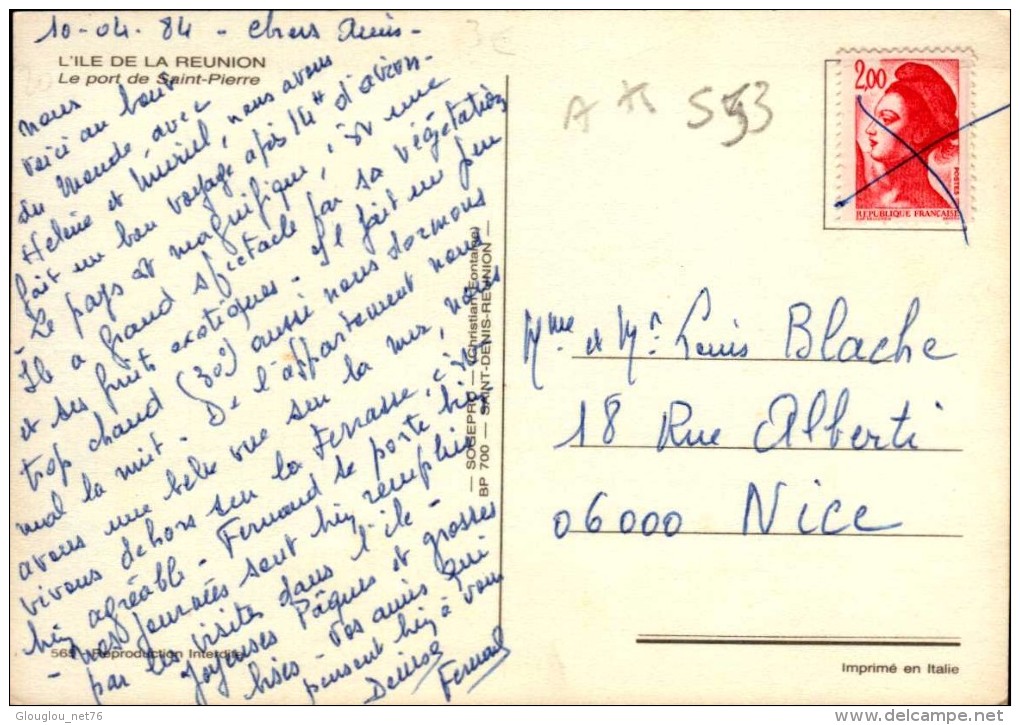 10-04-84 - Chers Amis -
L'ILE DE LA REUNION
Le port de Saint-Pierre
nous
voici au bout
du monde avec
Hélène et Muriel, nous avons
fait un bon voyage après 14H d'avion -
- Le pays est magnifique, c'est une
Ile a grand spectacle par sa végétation
et ses fruits exotiques - Il fait un peu
trop chaud (30°) aussi nous dormons
mal la nuit - De l'appartement nous
avons une belle vue sur la mer, nous
vivons dehors sur la Terrasse, c'est
bien agréable - Fernand se porte bien
- nos journées sont bien remplies
par les visites dans l'île -
Joyeuses Pâques et grosses
bises - Vos amis qui
pensent bien à vous
Denise
Fernand
569 - Reproduction Interdite
— SOGEPRO — (Christian Fontaine)
BP 700 — SAINT-DENIS-REUNION —
3€
A 553
2,00
POSTES
REPUBLIQUE FRANÇAISE
Mme et Mr Louis Blache
18 Rue Alberti
06000 Nice
Imprimé en Italie
Glouglou_net76